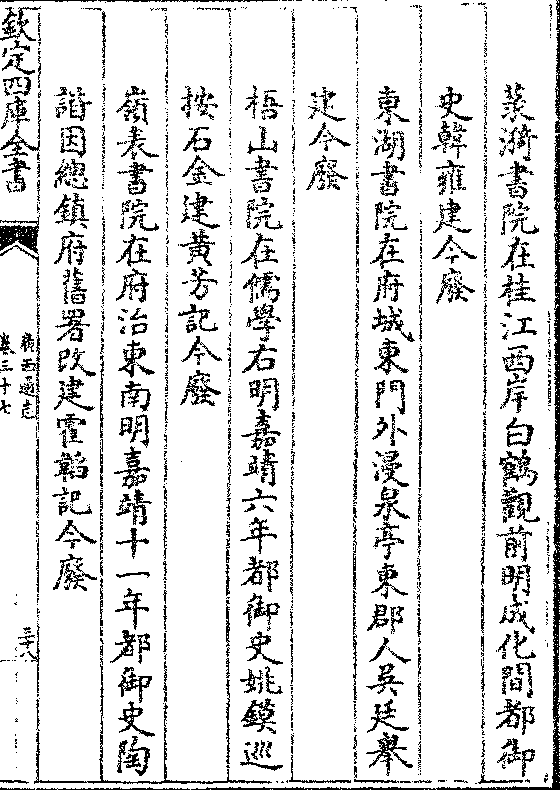 菉漪書院在桂江西岸白鶴觀前明成化間都御
史韓雍建今廢
東湖書院在府城東門外漫泉亭東郡人吳廷舉
建今廢
梧山書院在儒學右明嘉靖六年都御史姚鏌巡
按石金建黄芳記今廢
嶺表書院在府治東南明嘉靖十一年都御史陶
諧因總鎮府舊署改建霍韜記今廢
欽定四庫全書
廣西通志
卷三十七
三十八